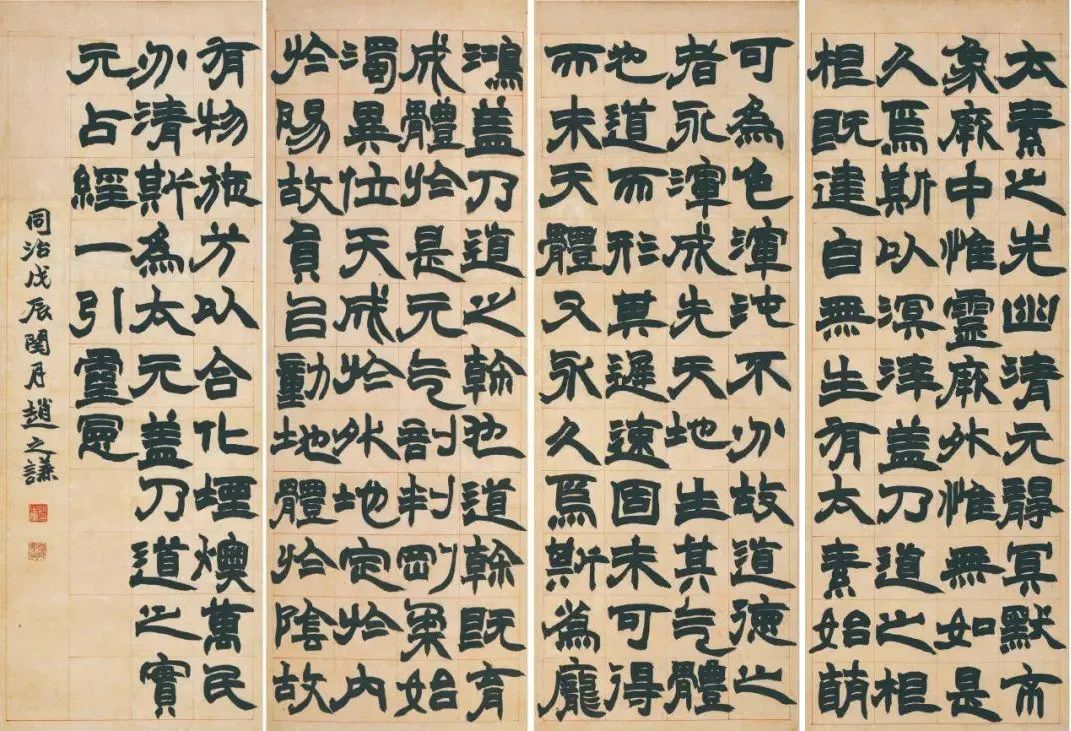 太素之先幽清元靜冥默不
象厥中惟靈厥外惟無如是
久焉斯以溟涬盖乃道之根
根既建自無生有太素始萌
可為色渾沌不分故道德之
者永渾成先天地生其气體
也道而形其遲速固未可得
而未天體又永久焉斯為龐
鴻盖乃道之榦也道榦既育
成體於是元气剖判剛柔始
濁異位天成於外地定於内
於陽故員以動地體於陰故
有物施方以合化堙燠萬民
分清斯為太元盖乃道之實
元占經一引靈憲
同治戊辰閏月趙之謙